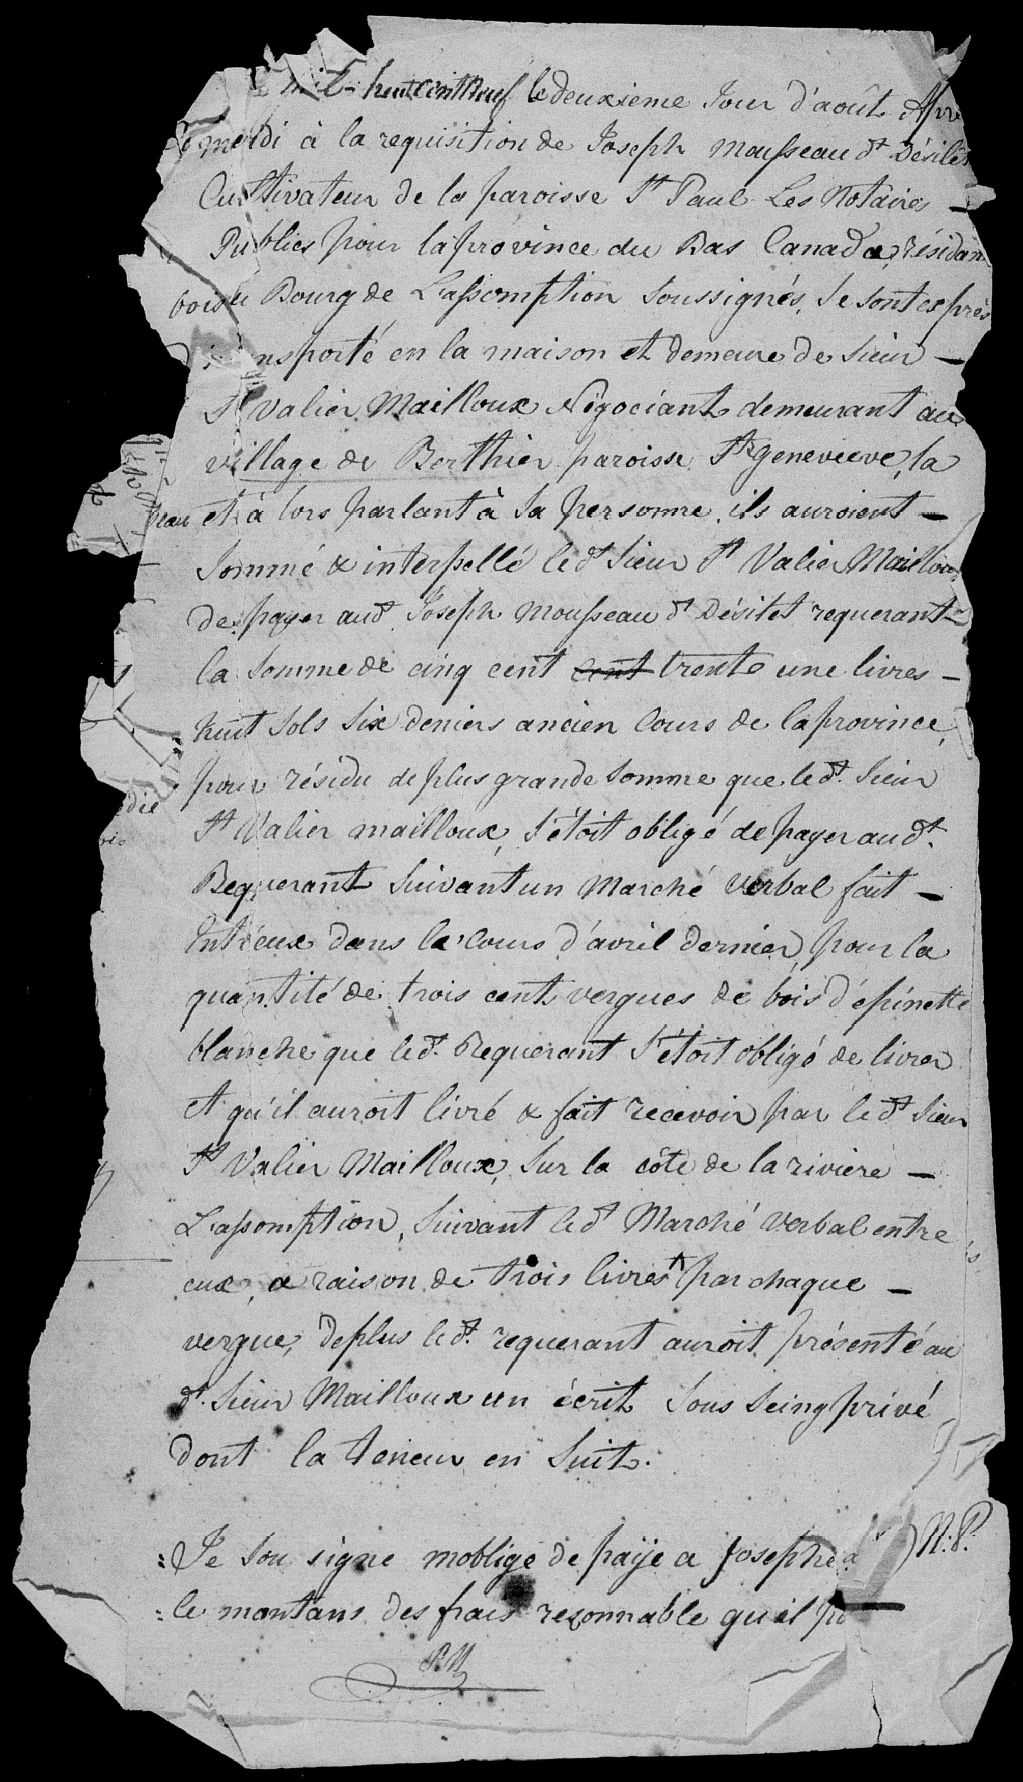 mil-huit cent neuf le deuxieme Jour d'août Apre
midi à la requisition de Joseph Mousseau dt Désilet
Cultivateur de la paroisse St Paul Les Notaires —
Publics pour la province du Bas Canada, résidan
Bourg de L'assomption soussignés, se sont exprès
nsporté en la maison et demeure de sieur —
St Valier Mailloux Négociant demeurant au
village de Berthier paroisse Ste Genevieve, la
et à lors parlant à sa personne, ils auroient —
sommé & interpellé led. Sieur St Valier Mailloux
de payer aud. Joseph Mousseau dt Désilet requerant
la somme de cinq cent cent trente une livres —
huit sols six deniers ancien Cours de la province,
pour résidu de plus grande somme que led. Sieur
St Valier mailloux, s'étoit obligé de payer aud.
Requerant suivant un Marché verbal fait —
Entr'eux dans le cours d'avril dernier, pour la
quantité de trois cent vergues de bois d'épinette
blanche que led. Requerant s'étoit obligé de livrer
et qu'il auroit livré & fait recevoir par led. Sieur
St Valier Mailloux, sur la côte de la riviere —
L'assomption, suivant led. Marché verbal entre
eux, a raison de trois livres ^ par chaque —
vergue, de plus led. requerant auroit présenté au
d. Sieur Mailloux un écrit sous seing privé
dont la teneur en suit.
Je sou signe moblige de paÿe a Josephe
N:P.
le montans des frais rezonnable qu il